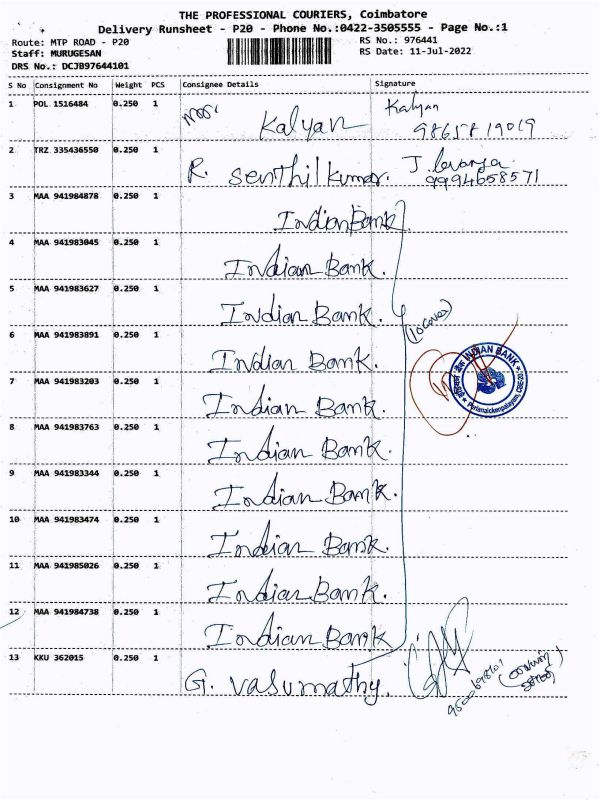 THE PROFESSIONAL COURIERS, Coimbatore
Delivery Runsheet - P20 - Phone No.:0422-3505555 - Page No.:1
Route: MTP ROAD - P20
RS No.: 976441
Staff: MURUGESAN
RS Date: 11-Jul-2022
DRS No.: DCJB97644101
S No Consignment No Weight PCS Consignee Details Signature
1 POL 1516484 0.250 1 Kalyan Kalyan
9865819019
2 TRZ 335436550 0.250 1 R. Senthil kumar.
9994658571
3 MAA 941984878 0.250 1 Indian Bank
4 MAA 941983045 0.250 1 Indian Bank.
5 MAA 941983627 0.250 1 Indian Bank.
(10 Cover)
6 MAA 941983891 0.250 1 Indian Bank.
INDIAN BANK
7 MAA 941983203 0.250 1 Indian Bank.
8 MAA 941983763 0.250 1 Indian Bank.
9 MAA 941983344 0.250 1 Indian Bank.
10 MAA 941983474 0.250 1 Indian Bank.
11 MAA 941985026 0.250 1 Indian Bank.
12 MAA 941984738 0.250 1 Indian Bank
13 KKU 362015 0.250 1 G. Vasumathy.